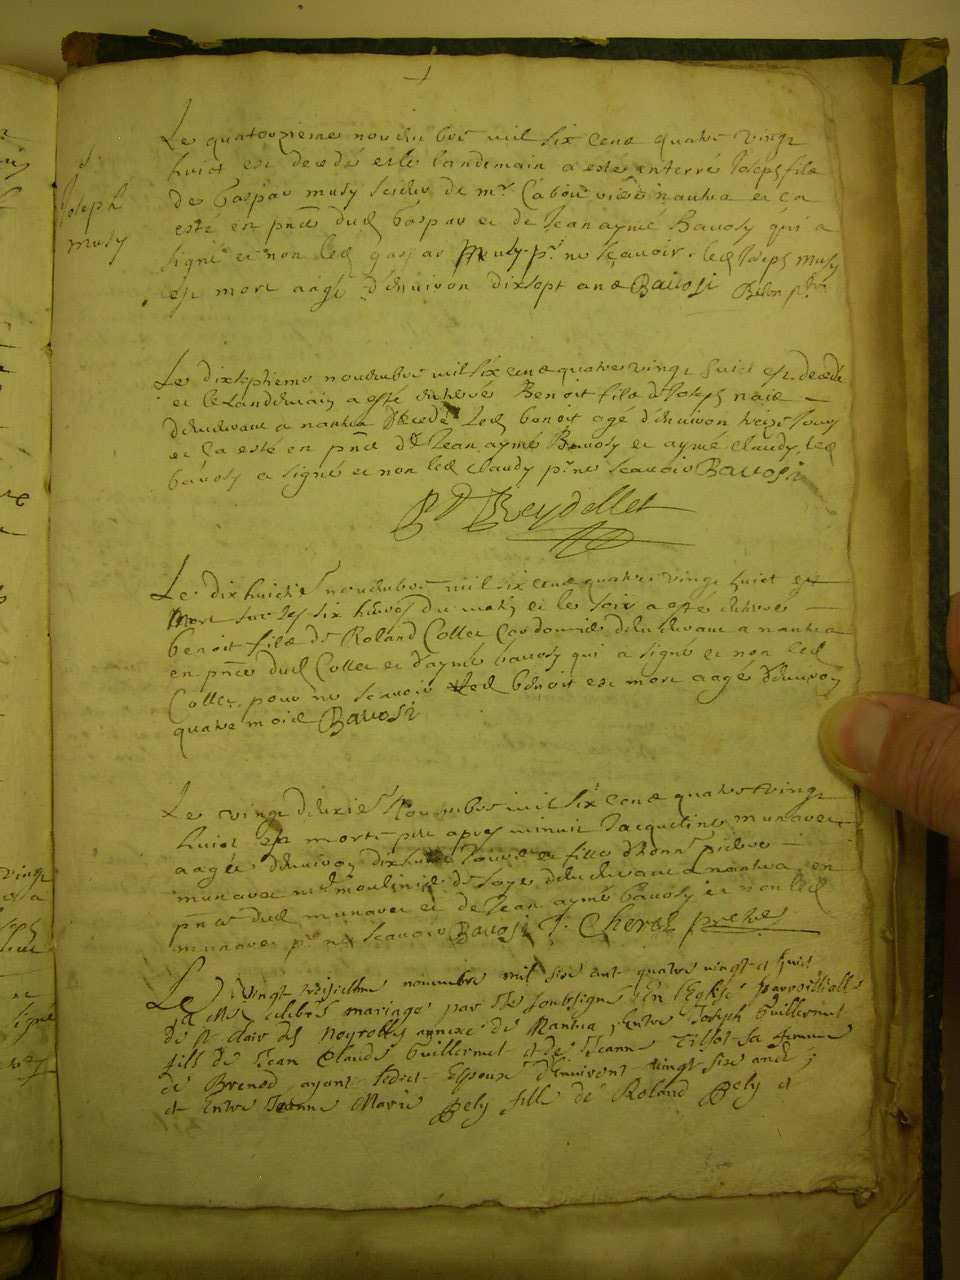 Joseph
musy
Le quatorzieme novembre mil six cens quatre vingt
huict est decedé et le landemain a esté enterré Joseph fils
de Gaspar musy de mr nantua et ca
esté en pnce dud Gaspar et de Jean aymé Bavosy qui a
signé et non led gaspar Musy pr ne sçavoir led Joseph musy
est mort aagé d'environ dixsept ans Bavosi
Le dixseptieme novembre mil six cens quatre vingt huict est decedé
et le landemain a esté enterré Benoit fils de Joseph
demeurant a nantua led benoit agé d'environ jours
et ca esté en pnce de Jean aymé Bavosy et aymé Claudy led
bavosy a signé et non led Claudy pr ne scavoir Bavosi
Reydellet
Le dix huictie novembre mil six cens quatre vingt huict est
mort sur les six heures du matin et le soir a esté enterré
benoit fils de Roland Collet Cordonnie demeurant a nantua
en pnce dud Collet et d'aymé bavosy qui a signé et non led
Collet pour ne scavoir led benoit est mort aagé d'environ
quatre mois Bavosi
Le vingt deuxie Novembre mil six cens quatre vingt
huict est morte apres minuit Jacqueline munavet
aagée d'environ jours et fille d'honn pierre
munavet moulinie de soye demeurant a nantua en
pnce dud munavet et de Jean aymé bavosy et non led
munavet pr ne scavoir Bavosi Cheval
Le vingt troisiesme novembre mil six cent quatre vingt et huit
a esté celebré mariage par Nre soubsigné En l'Eglise parroissialle
de St clair des Neyrolles annexe de Nantua, Entre Joseph Guillermet
fils de Jean Claude Guillermet et de Jeanne Tissot sa femme
de Brenod ayant ledict Espoux d'Environt vingt six ans;
et Entre Jeanne Marie Pely fille de Roland Pely et